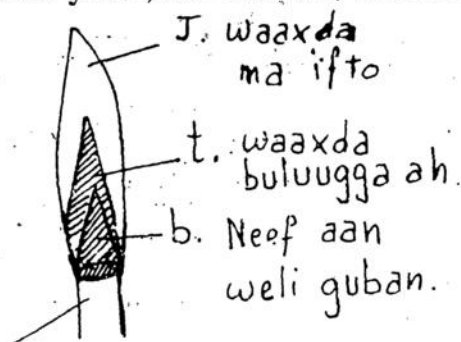 J. waaxda
ma ifto
t. waaxda
buluugga ah.
b. Neef aan
weli guban.